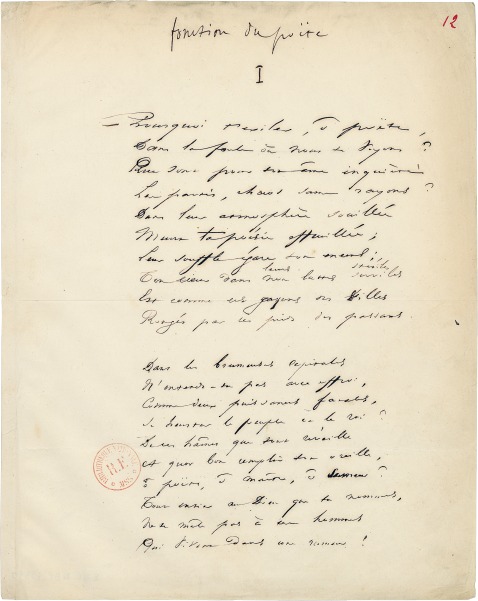 12
fonction du poëte
I
— Pourquoi t'exiler, ô poëte,
Dans la foule où nous te voyons ?
Que sont pour ton âme inquiète
Les partis, chaos sans rayons ?
Dans leur atmosphère souillée
Meurt ta poésie effeuillée ;
Leur souffle égare ton encens ;
leurs
Ton cœur dans luttes serviles
Est comme ces gazons des villes
Rongés par les pieds des passants.
Dans les brumeuses capitales
N'entends-tu pas avec effroi,
Comme deux puissances fatales,
Se heurter le peuple et le roi ?
De ces haines que tout réveille
A quoi bon emplir ton oreille,
O poëte, ô maître, ô semeur ?
Tout entier au Dieu que tu nommes,
Ne te mêle pas à ces hommes
Qui vivent dans une rumeur !
R.F.
MSS